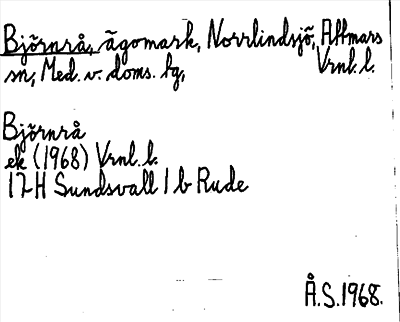 Björnrå, ägomark, Norrlindsjö, Attmars
sn, Med. v. doms. hg, Vrnl. l.
Björnrå
ek (1968) Vrnl. l.
17H Sundsvall 1 b Rude
Å.S. 1968.